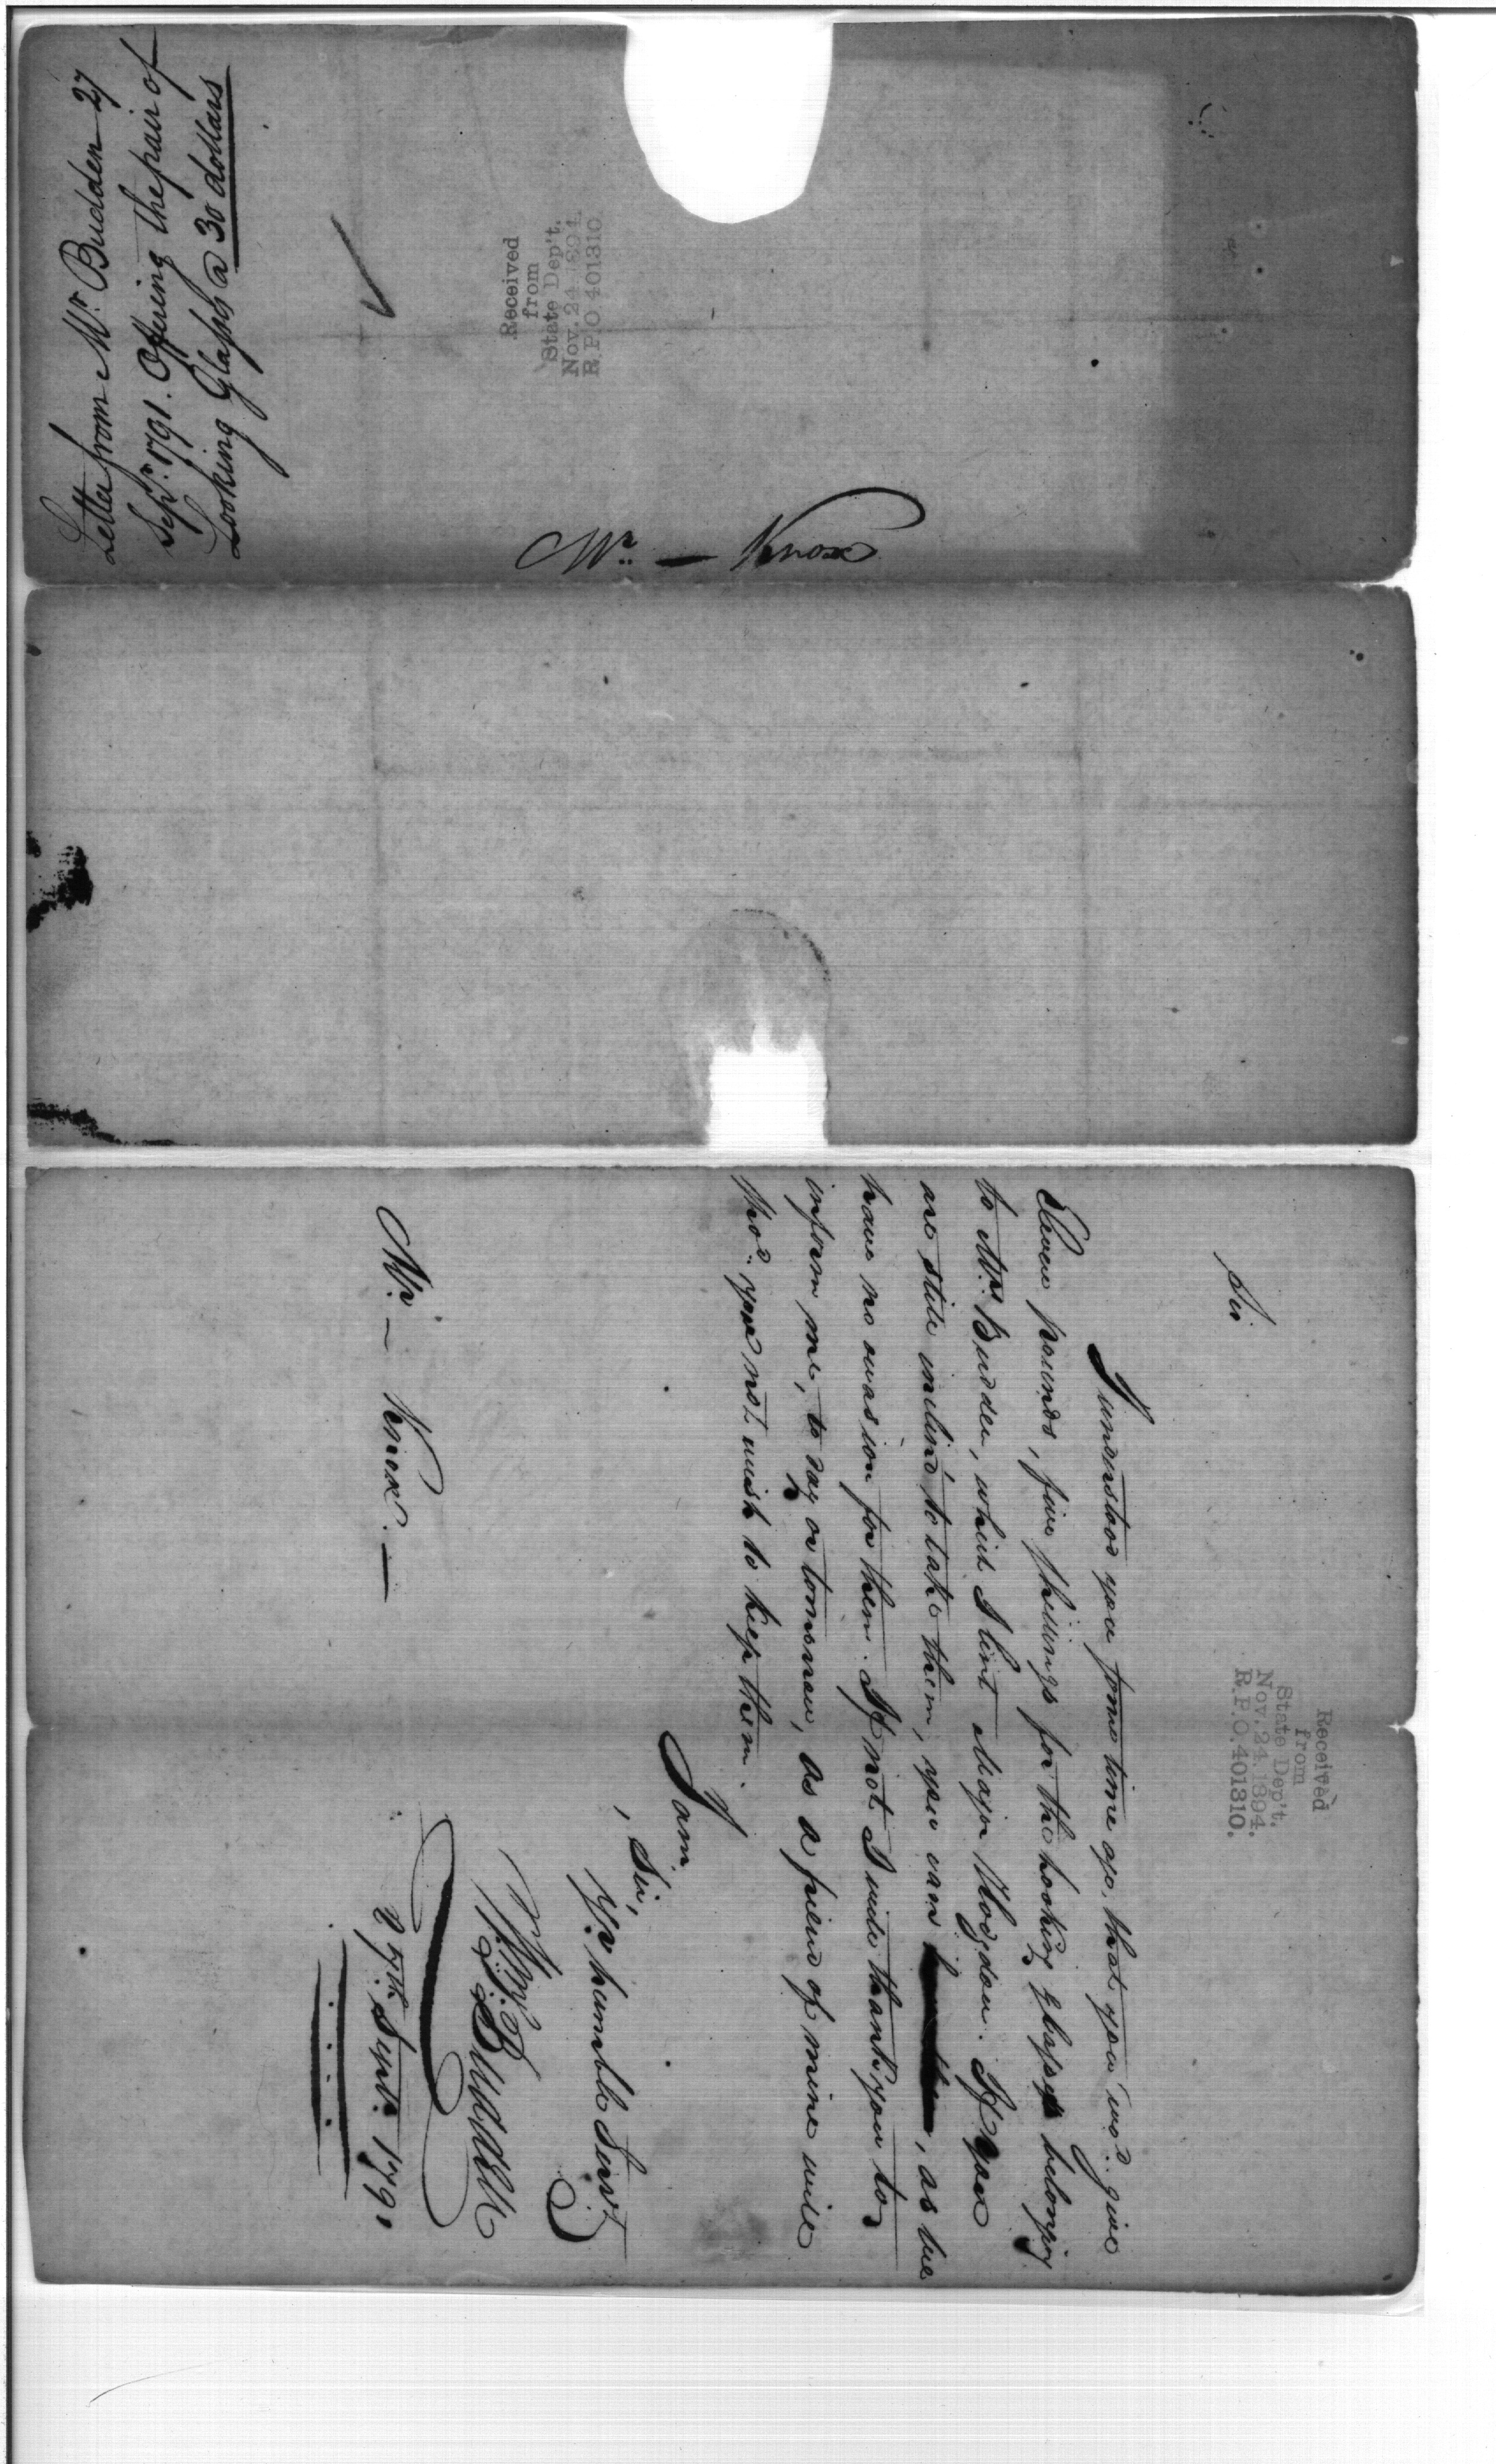 Letter from Mr. Budden 27
Sepr. 1791. Offering the pair of
Looking Glasses @ 30 dollars
Received
from
State Dep't.
Nov. 24 1894.
R.P.O 401310
Mr. — Knox
Received
from
State Dep't.
Nov. 24. 1894.
R.P.O. 401310.
Sir
I understood you some time ago, that you wod. give
Eleven pounds, five shillings for the looking glasses belonging
to Mrs. Budden, which I lent Major Hodgdon. If you
are still inclin'd to take them, you can , as we
have no ocasion for them. If not I will thank you to
inform me, to day or tomorrow, as a friend of mine will
shod. you not wish to keep them.
I am
, Sir,
Yr. humble Servt
Wm. Budden
27th. Septr. 1791
Mr. — Knox. —